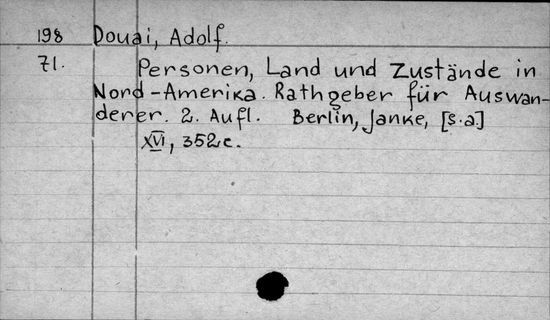 198 Douai, Adolf.
71. Personen, Land und Zustände in
Nord-Amerika. Rathgeber für Auswan-
derer. 2. Aufl. Berlin, Janke, [s.a.]
XVI, 352 c.